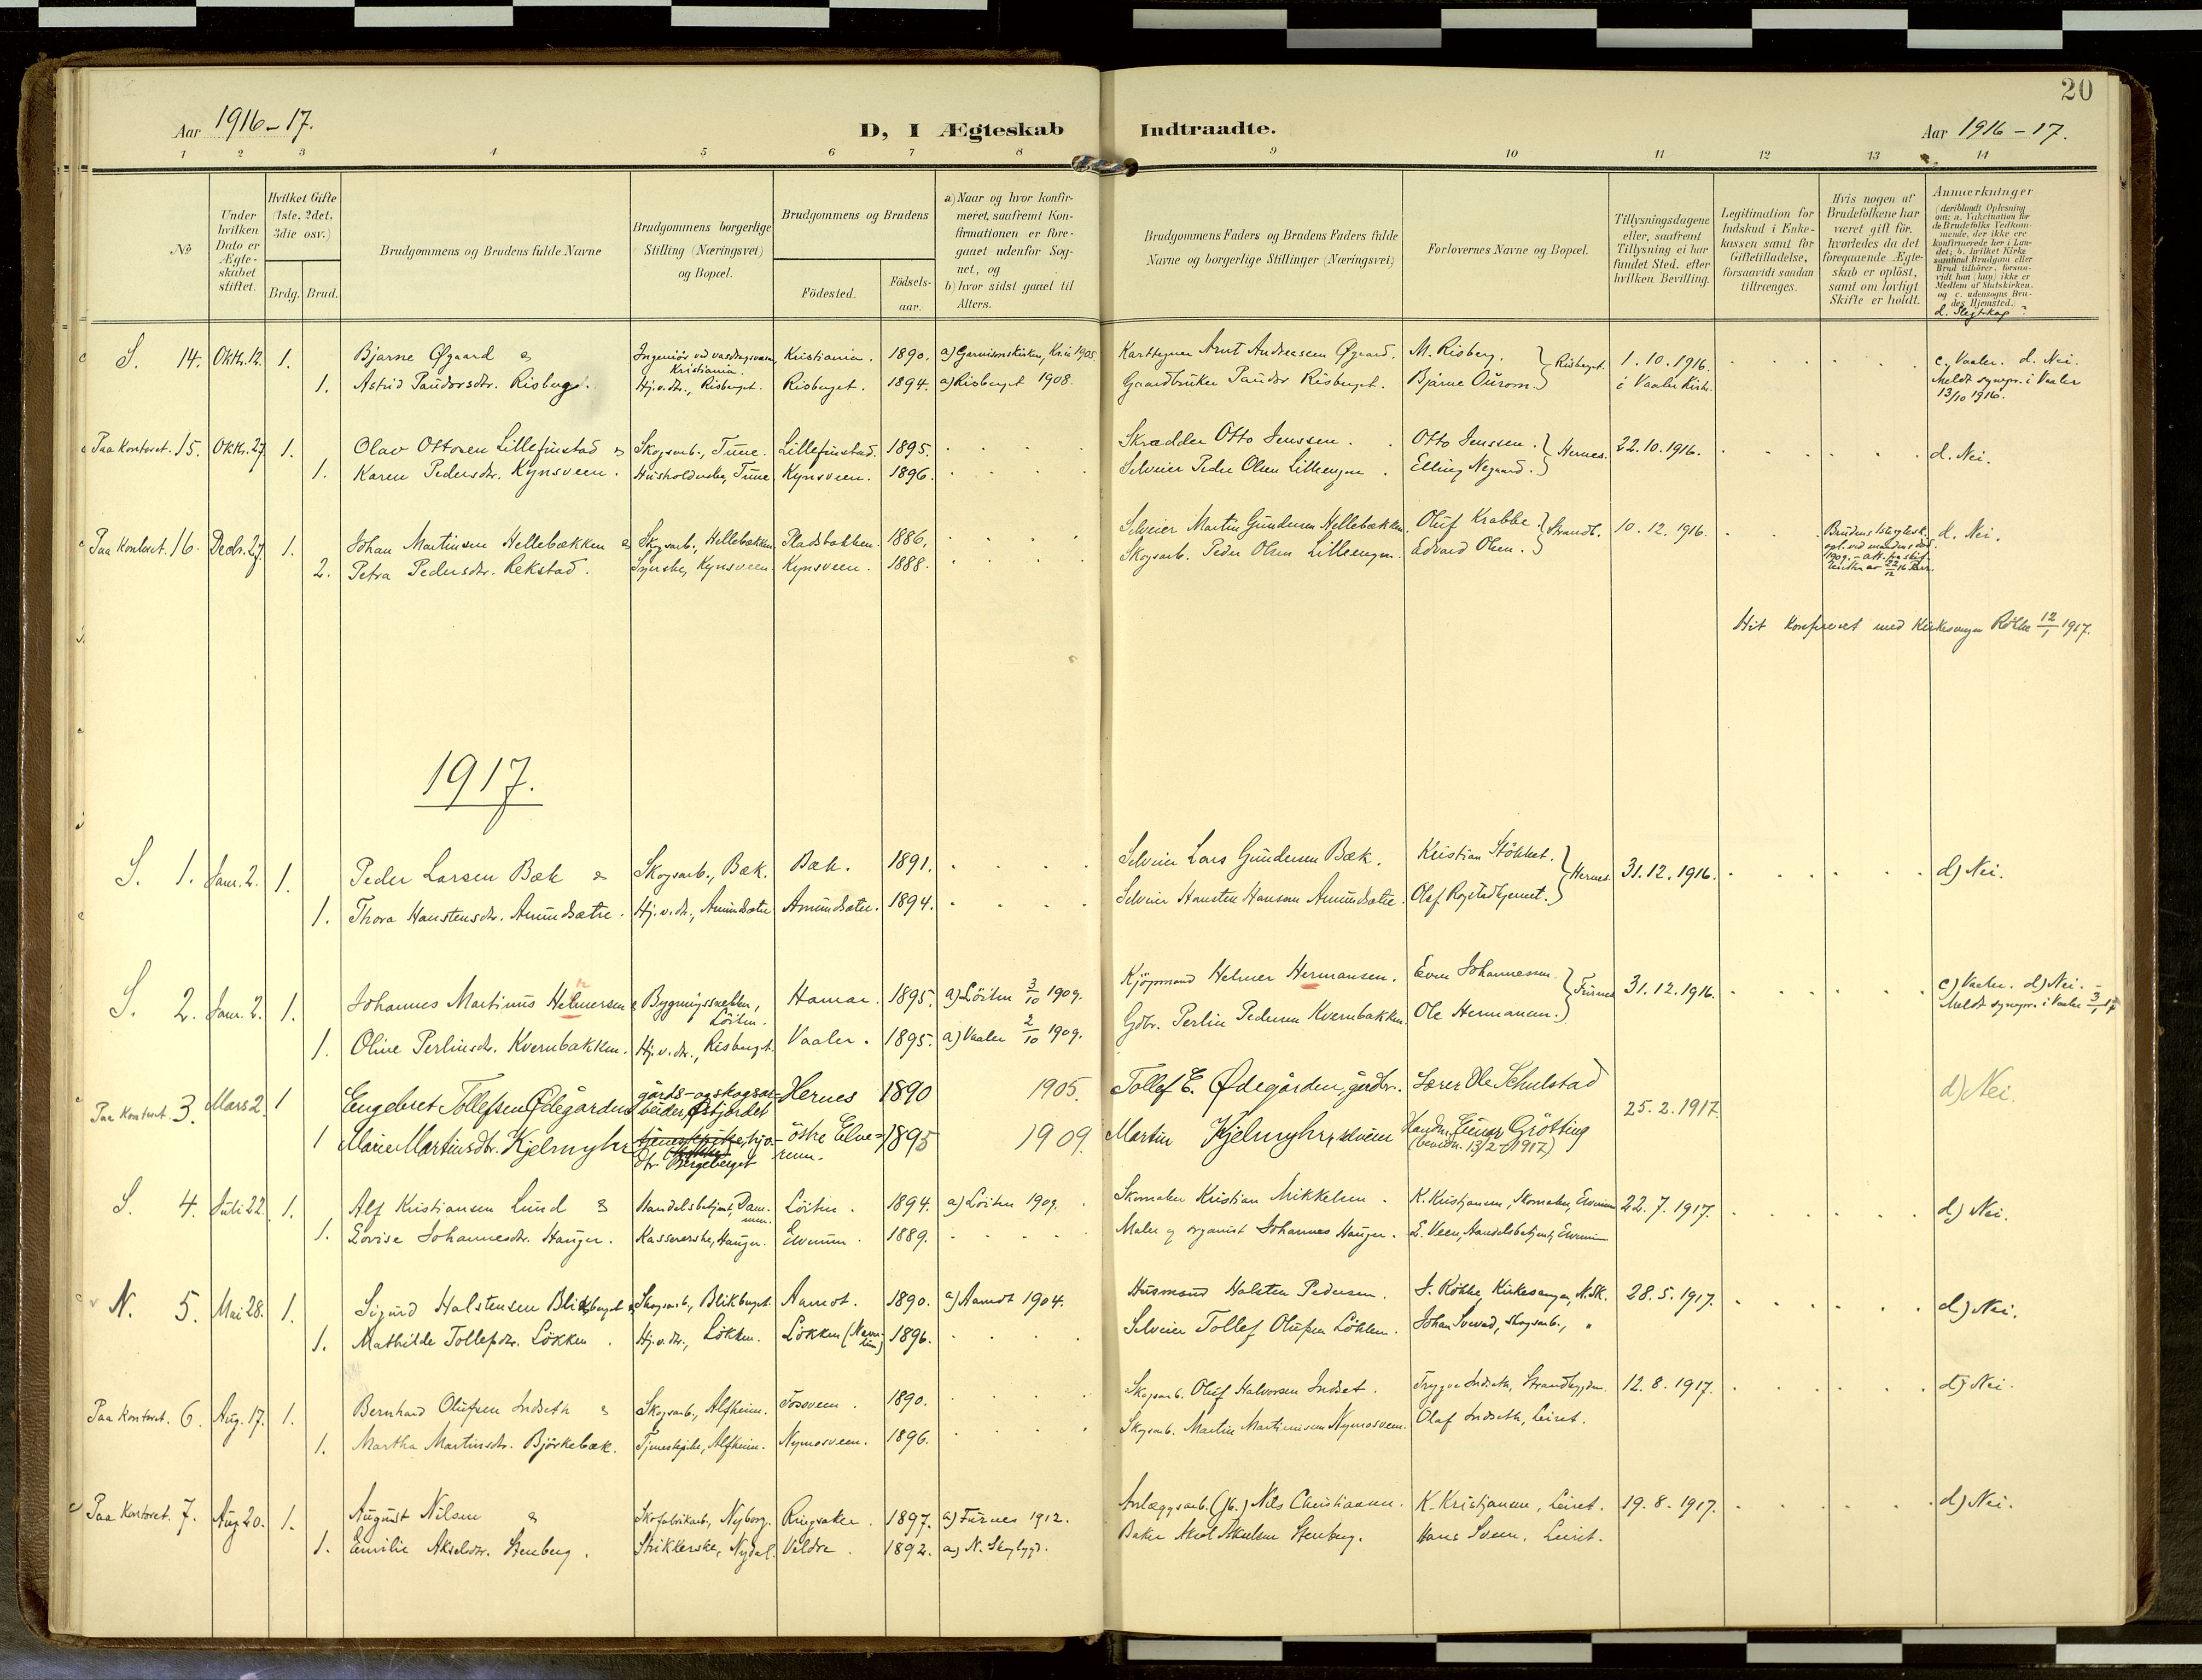 20
Aar 1916-17. D, I Ægteskab Indtraadte. Aar 1916-17.
1 2 3 4 5 6 7 8 9 10 11 12 13 14
No
Under hvilken Dato er Ægteskabet stiftet.
Hvilket Gifte (1ste, 2det, 3die osv.)
Brdg. Brud.
Brudgommens og Brudens fulde Navne
Brudgommens borgerlige Stilling (Næringsvei) og Bopæl.
Brudgommens og Brudens
Fødested. Fødselsaar.
a) Naar og hvor konfirmeret, saafremt Konfirmationen er foregaaet udenfor Sognet, og
b) hvor sidst gaaet til Alters.
Brudgommens Faders og Brudens Faders fulde Navne og borgerlige Stillinger (Næringsvei)
Forlovernes Navne og Bopæl.
Tillysningsdagene eller, saafremt Tillysning ei har fundet Sted, efter hvilken Bevilling.
Legitimation for Indskud i Enkekassen samt for Giftetilladelse, forsaavidt saadan tiltrænges.
Hvis nogen af Brudefolkene har været gift før, hvorledes da det foregaaende Ægteskab er opløst, samt om lovligt Skifte er holdt.
Anmerkninger (deriblandt Oplysning om: a. Vakcination for de Brudefolks Vedkommende, der ikke ere konfirmerede her i Landet; b. hvilket Kirkesamfund Brudgom eller Brud tilhører, forsaavidt han (hun) ikke er Medlem af Statskirken, og c. udensogns Brudes Hjemsted.
d. Slegtskap?
S. 14. Oktb. 12. 1. Bjarne Øgaard & Ingeniør ved vasdragsvæsen, Kristiania. Kristiania. 1890. a) Garnisonskirken, Kr.ia 1905. Karttegner Arnt Andreassen Øgaard. M. Risberg. Risberget. 1.10.1916. c. Vaaler. d. Nei.
1. Astrid Paudorsdtr. Risberg. Hj.v.dr., Risberget. Risberget. 1894. a) Risberget 1908. Gaardbruker Paudor Risberget. Bjarne Ourom. i Vaaler Kirke. Meldt sognepr. i Vaaler 13/10 1916.
Paa kontoret. 15. Oktb. 27. 1. Olav Ottosen Lillefinstad & Skogsarb., Tune. Lillefinstad. 1895. Skrædder Otto Jenssen. Otto Jenssen. Hernes. 22.10.1916. d. Nei.
1. Karen Pedersdtr. Kynsveen. Husholderske, Tune. Kynsveen. 1896. Selveier Peder Olsen Lilleengen. Elling Negaard.
Paa kontoret. 16. Decbr. 27. 1. Johan Martinsen Hellebækken & Skogsarb., Hellebækken. Pladsbakken. 1886. Selveier Martin Gundersen Hellebækken. Oluf Krabbe. Strandb. 10.12.1916. Brudens 1ste egtesk. opl. ved mandens død 1909. d. Nei.
2. Petra Pedersdtr. Rekstad. Syerske, Kynsveen. Kynsveen. 1888. Skogsarb. Peder Olsen Lilleengen. Edvard Olsen.
Hit konfereret med Kirkesanger Røkke 12/1 1917.
1917.
S. 1. Janr. 2. 1. Peder Larsen Bæk & Skogsarb., Bæk. Bæk. 1891. Selveier Lars Gundersen Bæk. Kristian Støkket. Hernes. 31.12.1916. d) Nei.
1. Thora Hanstensdtr. Amundsætre. Hj.v.dr., Amundsætre. Amundsætre. 1894. Selveier Hansten Hansen Amundsætre. Olaf Rogstadkjernet.
S. 2. Janr. 2. 1. Johannes Martinus Helmersen & Bygningssnekker, Løiten. Hamar. 1895. a) Løiten 3/10 1909. Kjøpmand Helmer Hermansen. Even Johannessen. Furnes 31.12.1916. c) Vaaler. d) Nei.
1. Oline Perlinsdtr. Kvernbakken. Hj.v.dr., Risberget. Vaaler. 1895. a) Vaaler 2/10 1909. Gdbr. Perlin Pedersen Kvernbakken. Ole Hermansen. Meldt sognepr. i Vaaler 3/1 17
Paa kontoret 3. Mars 2. 1 Engebret Tollefsen Ødegården gårds- og skogsarbeider, Østjordet Hernes 1890 1905. Tollef E. Ødegården, gårdbr. Lærer Ole Schulstad 25.2.1917. d) Nei.
1 Marie Martinsdtr. Kjelmyhr hjv. dtr. Bergeberget østre Elverum. 1895 1909. Martin Kjelmyhr, selveier Handm. Einar Grøtting (bevidn. 13/2-1917)
S. 4. Juli 22. 1. Alf Kristiansen Lund & Handelsbetjent, Drammen. Løiten. 1894. a) Løiten 1909. Skomaker Kristian Mikkelsen. K. Kristjansen, Skomaker, Elverum 22.7.1917. d) Nei.
1. Lovise Johannesdtr. Hanger. Kassererske, Hanger. Elverum. 1889. Maler og organist Johannes Hanger. E. Veen, Handelsbetjent, Elverum
N. 5. Mai 28. 1. Sigurd Halstensen Blikberget & Skogsarb., Blikberget. Aamot. 1890. a) Aamot 1904. Husmand Halsten Pedersen. J. Røkke, Kirkesanger, N.Sk. 28.5.1917. d) Nei.
1. Mathilde Tollefsdtr. Løkken. Hj.v.dr., Løkken. Løkken 1896. Selveier Tollef Olufsen Løkken. Johan Svevad, Skogsarb., "
Paa kontoret. 6. Aug. 17. 1. Bernhard Olufsen Indseth & Skogsarb., Alfheim. Tosveen. 1890. Skogsarb. Oluf Halvorsen Indset. Trygve Indseth, Strandbygden. 12.8.1917. d) Nei.
1. Martha Martinsdtr. Bjørkebæk. Tjenestepike, Alfheim. Nymosveen. 1896. Skogsarb. Martin Martinusen Nymosveen. Olaf Indseth, Leiret.
Paa kontoret. 7. Aug. 20. 1. August Nilsen & Skofabrikarb., Nyborg. Ringsaker. 1897. a) Furnes 1912. Anlægsarb. (Jb.) Nils Christiansen. K. Kristjansen, Leiret. 19.8.1917. d) Nei.
1. Emilie Akselsdtr. Stenberg. Strikkerske, Nydal. Veldre. 1892. a) N. Skogbygd. Baker Aksel Akselsen Stenberg. Hans Sveen, Leiret.